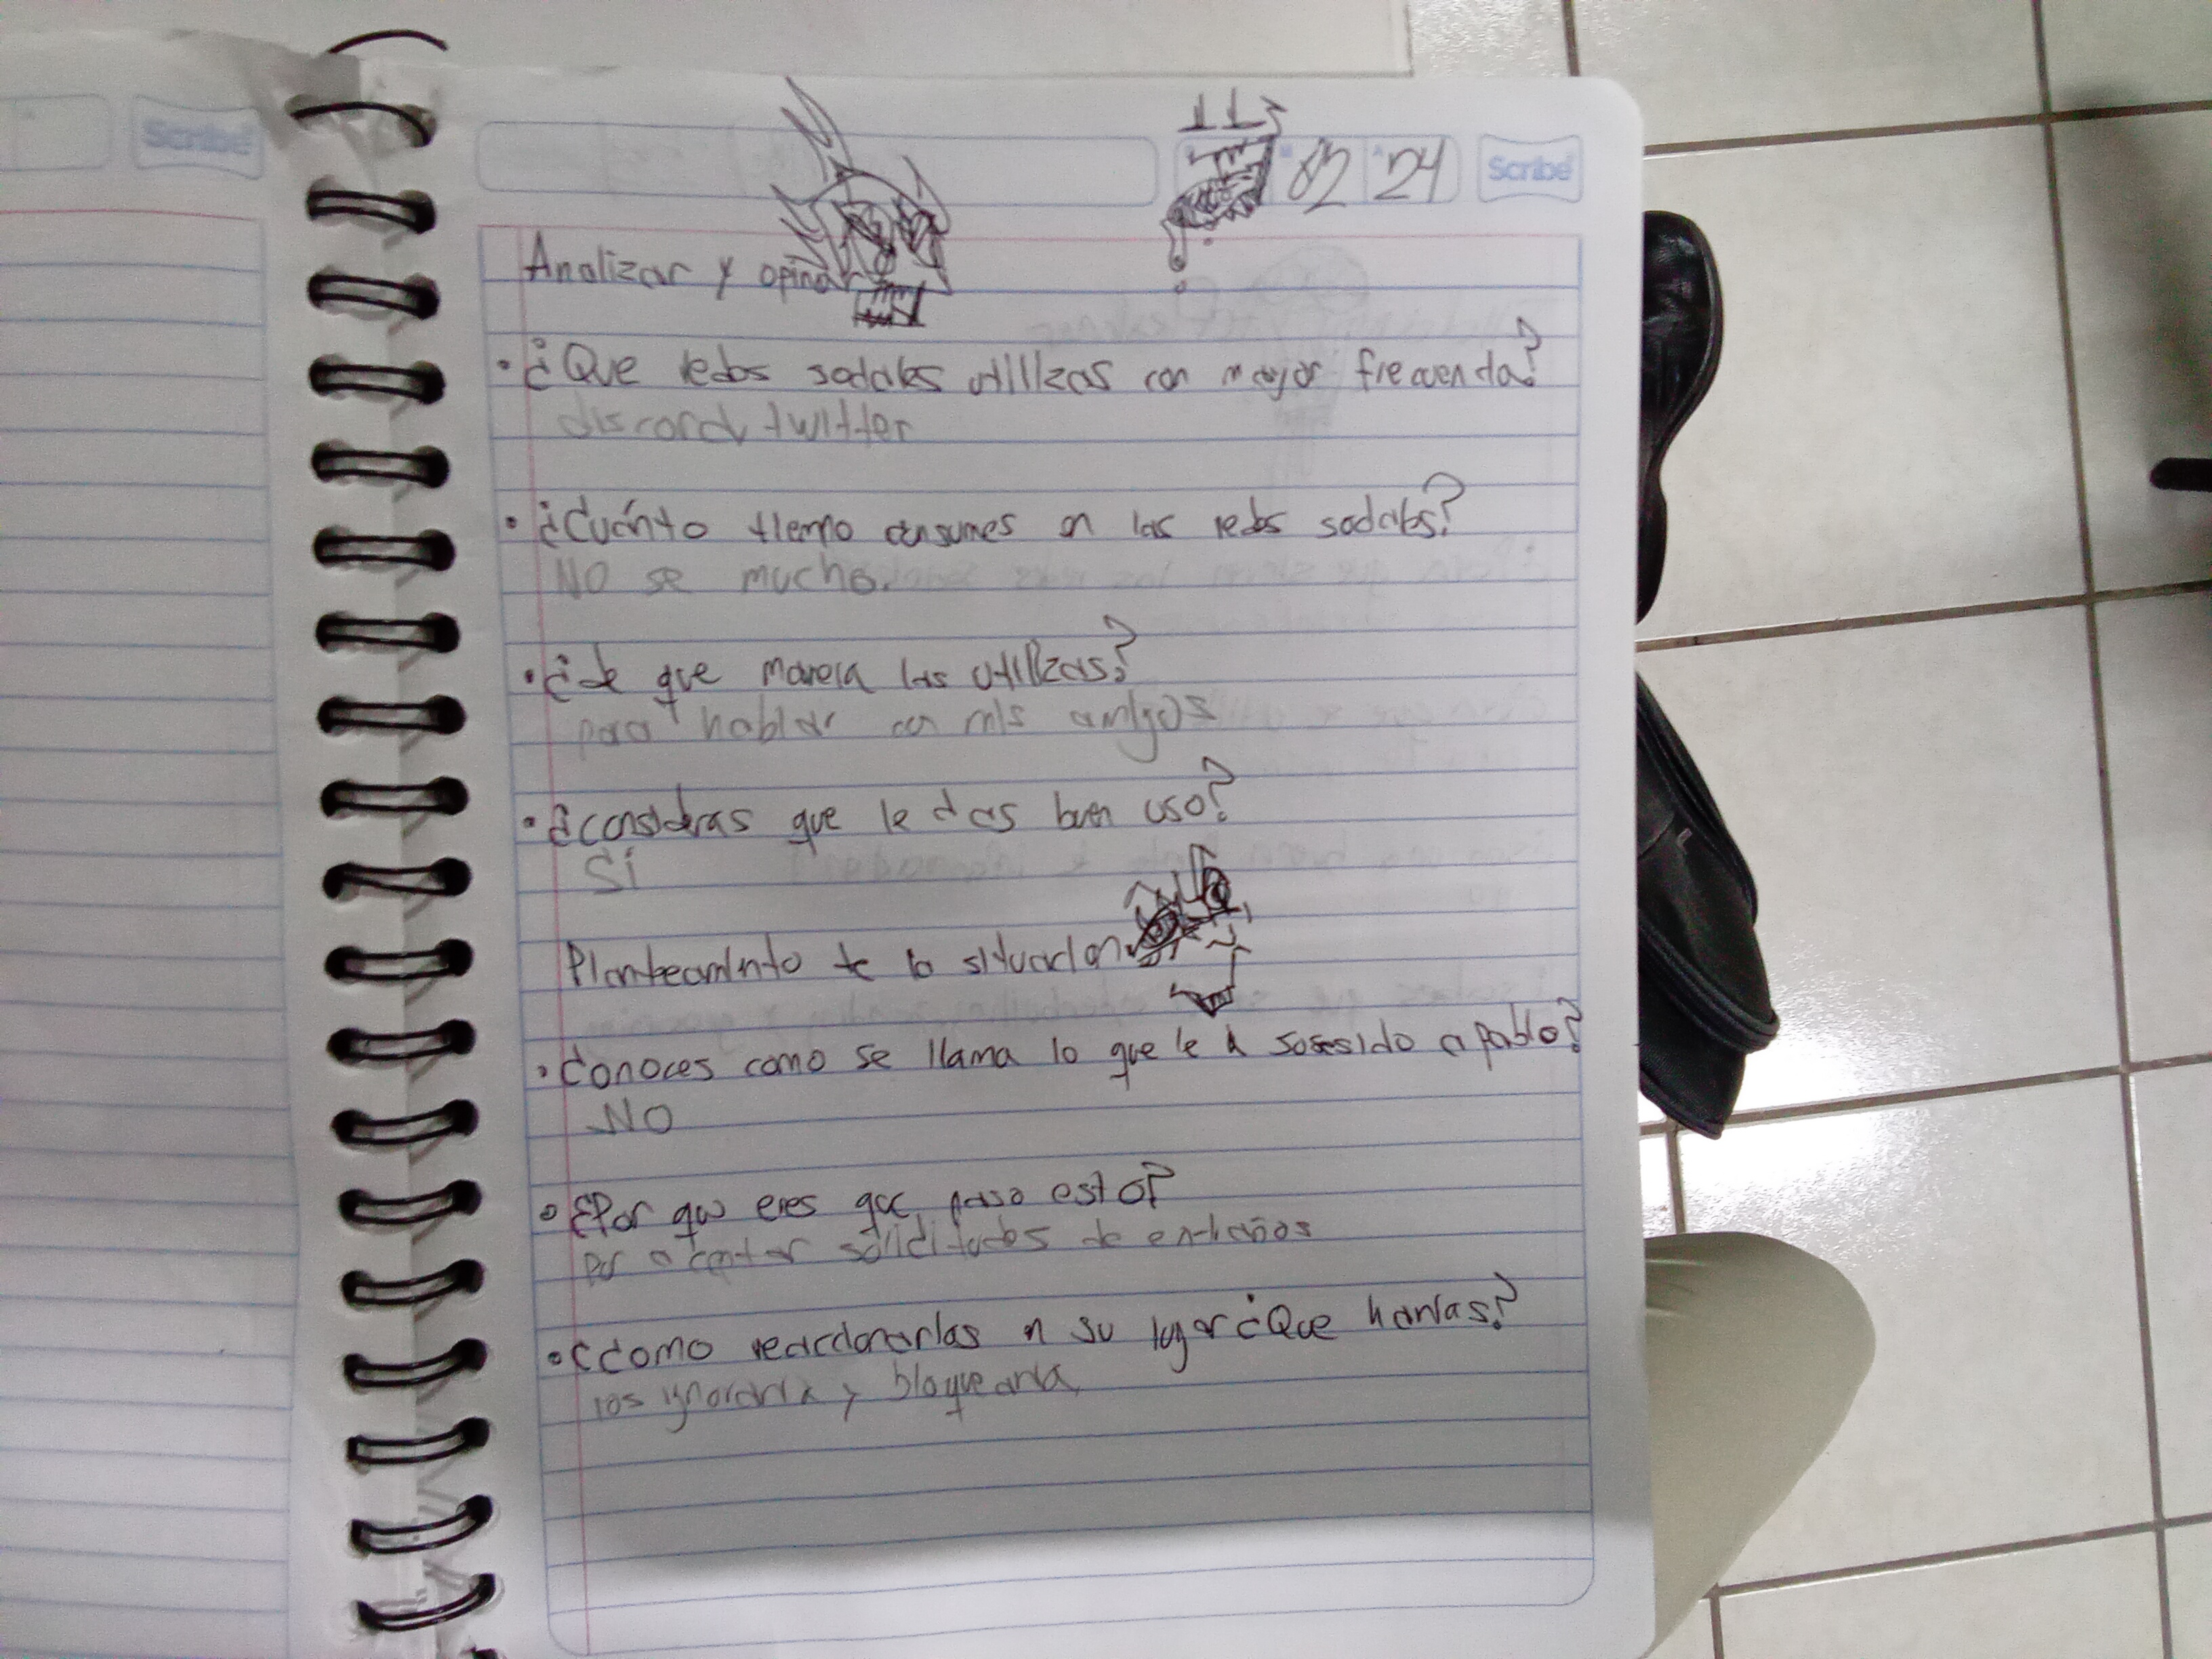 Scribe
Scribe
02 24
Analizar y opinar
• ¿Que redes sociales utilizas con mayor frecuencia?
discord twitter
• ¿Cuánto tiempo consumes en las redes sociales?
NO se mucho.
• ¿de que manera las utilizas?
para hablar con mis amigos
• ¿consideras que le das buen uso?
Si
Planteaminto de la situacion
• Conoces como se llama lo que le a sosesido a pablo?
NO
• ¿Por que cres que paso esto?
por acentar soliditudes de extraños
• ¿Como reaccionarias en su lugar ¿Que harias?
los ignoraria y bloquearia